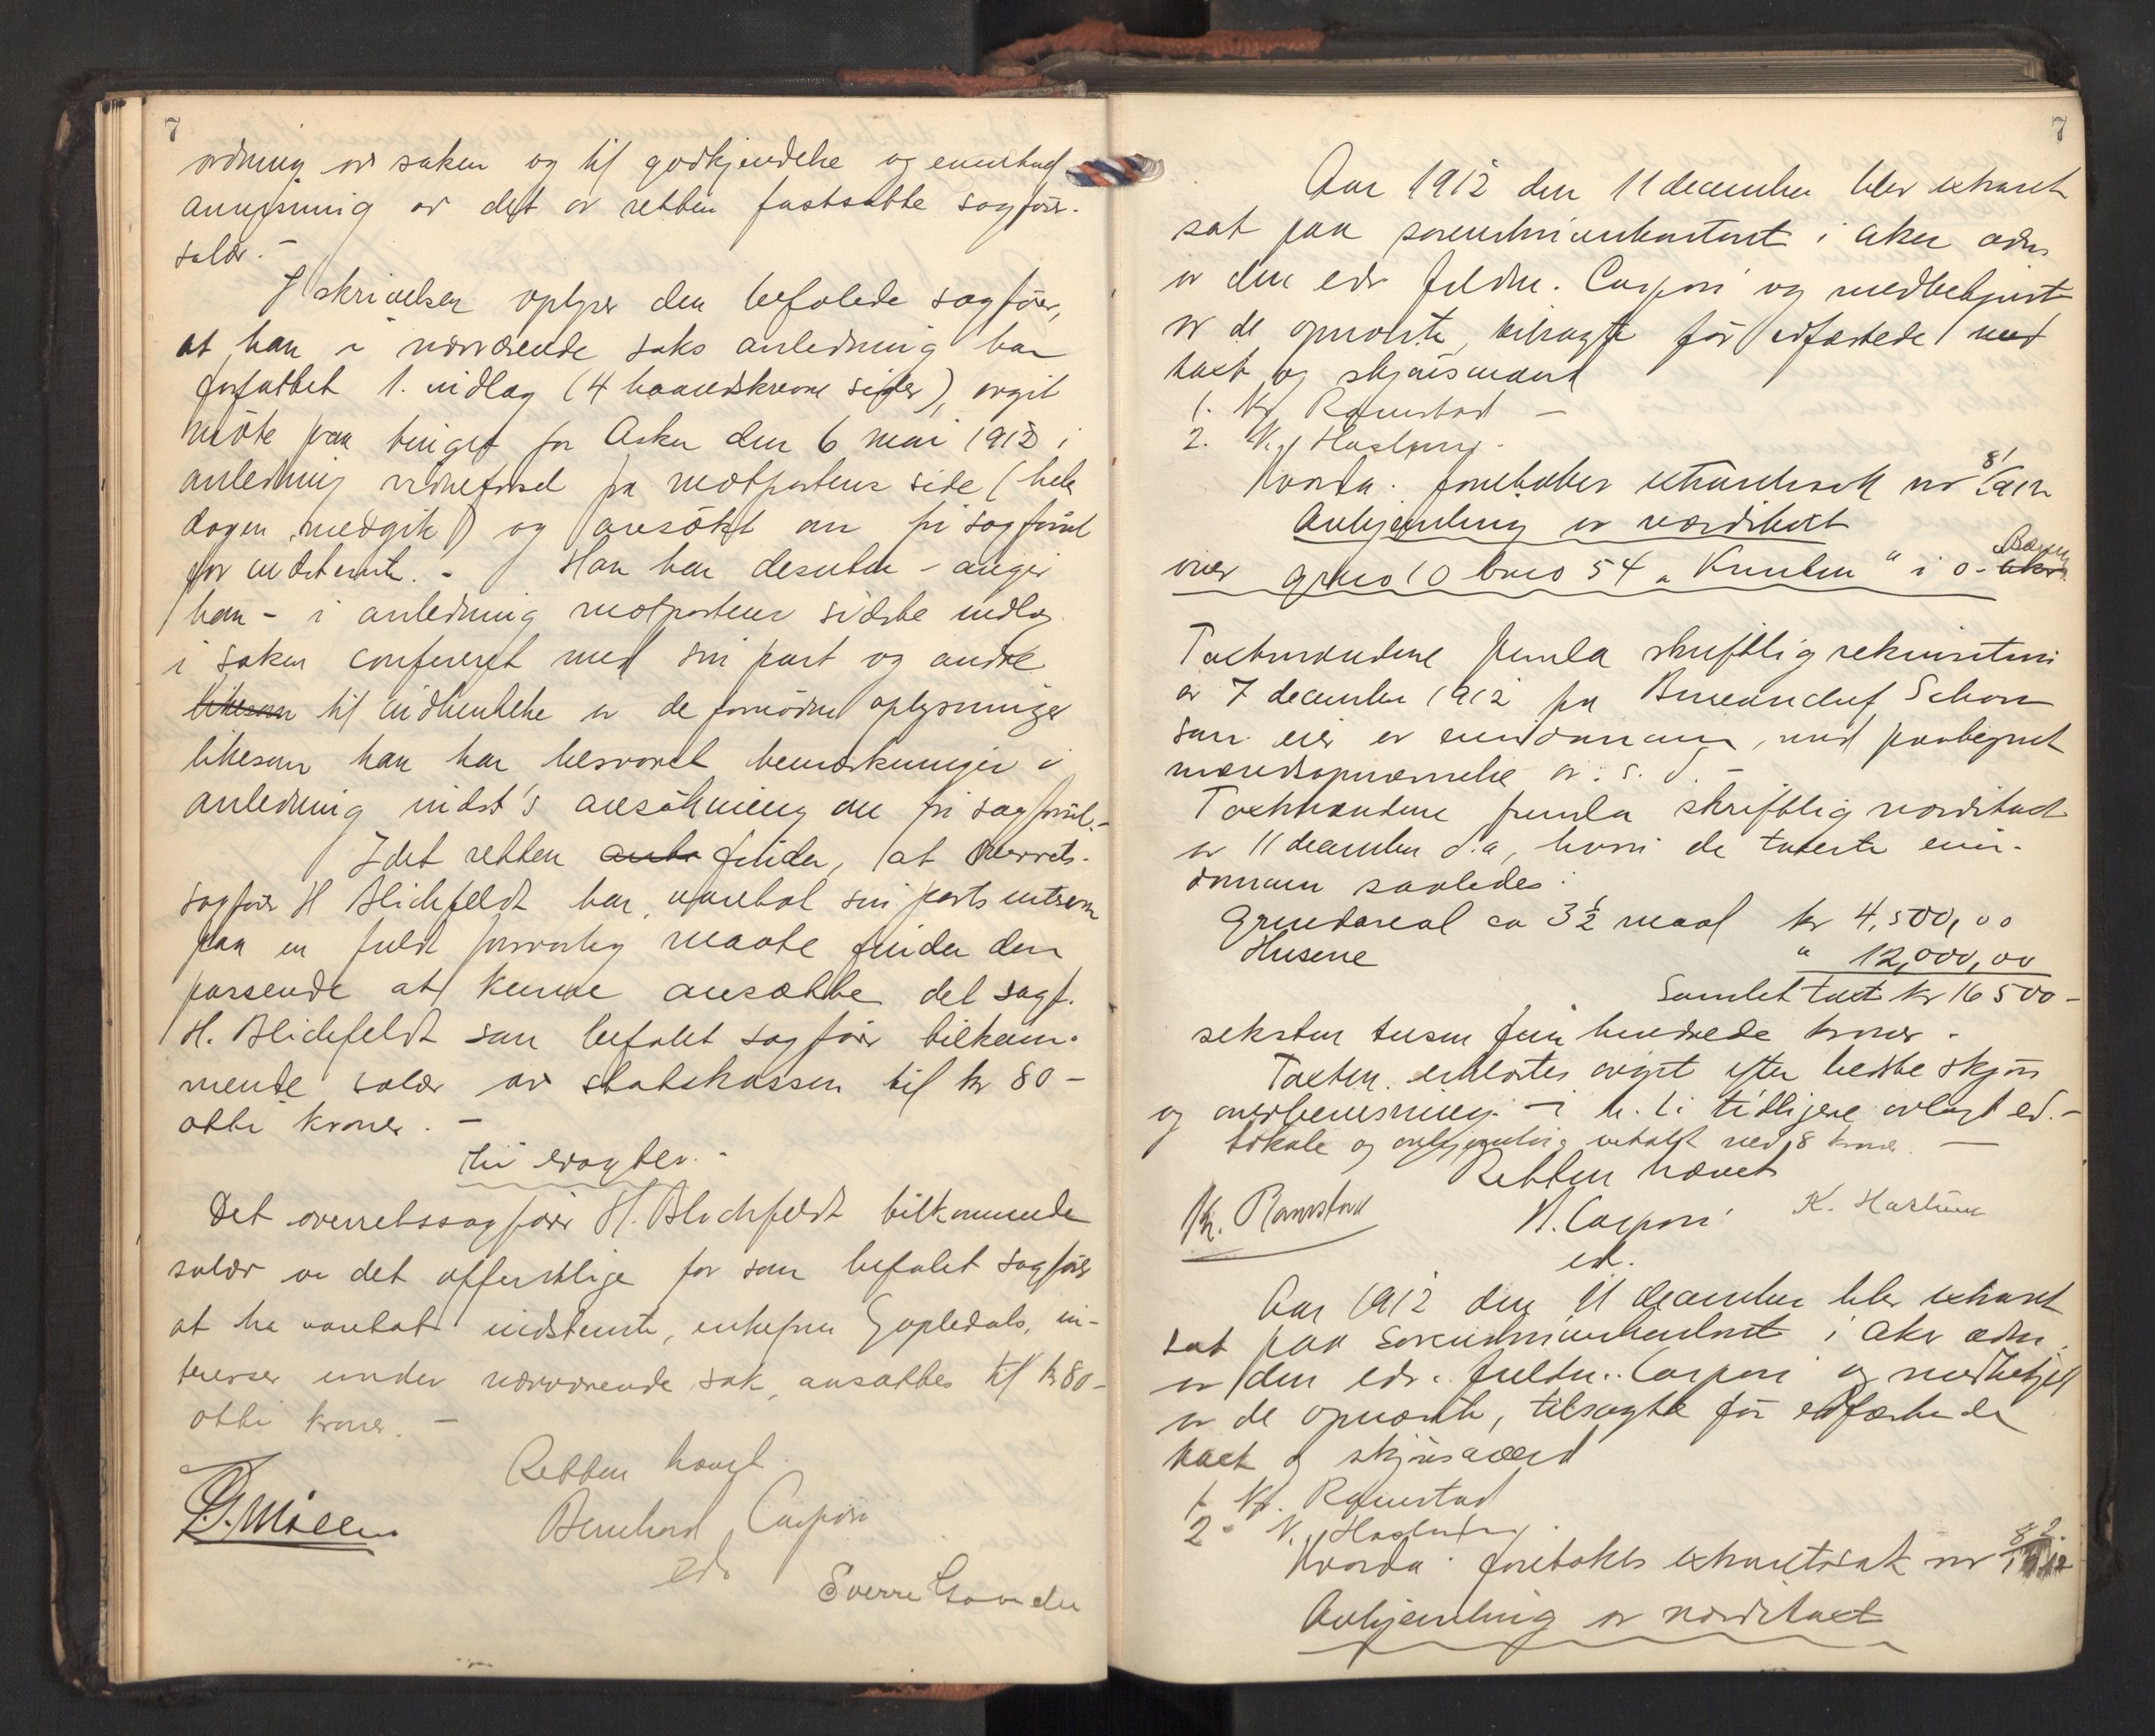 7
ordning av saken og til godkjendelse og eventuel
anvisning av det av retten fastsatte sagfør-
salær. -
I skrivelsen oplyser den befalede sagfører,
at han i nærværende saks anledning har
forfattet 1. indlæg (4 haandskrevne sider), avgit
møte paa tinget for Asker den 6 mai 1912 i
anledning vidneførsel fra motpartens side (hele
dagen medgik) og ansøkt om fri sagførsel
for indstevnte. - Han har desuten - angir
han - i anledning motpartens sidste indlæg
i saken confereret med sin part og andre
likesom til indhentelse av de fornødne oplysninger
likesom han har besvaret bemerkninger i
anledning indst's ansøkning om fri sagførsel. -
Idet retten finder, at overrets-
sagfører H Blichfeldt har varetat sin parts interesser
paa en fuldt forsvarlig maate finder den
passende at kunne ansætte det sagf.
H. Blichfeldt som befalet sagfører tilkom-
mende salær av statskassen til kr 80 -
otti kroner. -
thi eragtes. -
Det overretssagfører H. Blichfeldt tilkommende
salær av det offentlige for som befalet sagfører
at ha varetat indstevnte, enkefru Gopledals, in-
teresser under nærværende sak, ansættes til kr 80 -
otti kroner. -
Retten hævet.
Bernhard Caspari
edv
Sverre
7
Aar 1912 den 11 december blev extraret
sat paa sorenskriverkontoret i Aker adm
av den edv fuldm. Caspari og medbetjent
av de opnævnte, tilsagte før edfæstede med
taxt og skjønsmænd
1. Kr. Ramstad -
2. K. Haslum.
Hvorda. foretokes extraretssak nr 81/1912
Avhjemling av værditaxt
over gno 10 bno 54 "Knulen" i Ø- Aker Bærum
Taxtmændene fremla skriftlig rekvisition
av 7 december 1912 fra Bureauchef Schou
som eier av eiendommen, med paategnet
mændsopnævnelse av s. d. -
Taxtmændene fremla skriftlig værditaxt
av 11 december d.a, hvori de taxerte eien-
dommen saaledes:
Grundareal ca 3 ½ maal kr 4,500,00
Husene " 12,000,00
Samlet taxt kr 16 500 -
seksten tusen fem hundrede kroner -
Taxten erklærtes avgit efter bedste skjøn
og overbevisning - i h. t. tidligere avlagt ed. -
Lokale og avhjemling betalt med 8 kroner. -
Retten hævet
Kr. Ramstad N. Caspari K. Haslum
ed.
Aar 1912 den 11 december blev extraret
sat paa Sorenskriverkontoret i Aker adm.
av den edv. fuldm. Caspari og medbetjent
av de opnævnte, tilsagte før edfæstede
taxt og skjønsmænd
1. Kr. Ramstad
2. K. Haslum.
Hvorda. foretokes extraretssak nr 82/1912
Avhjemling av værditaxt